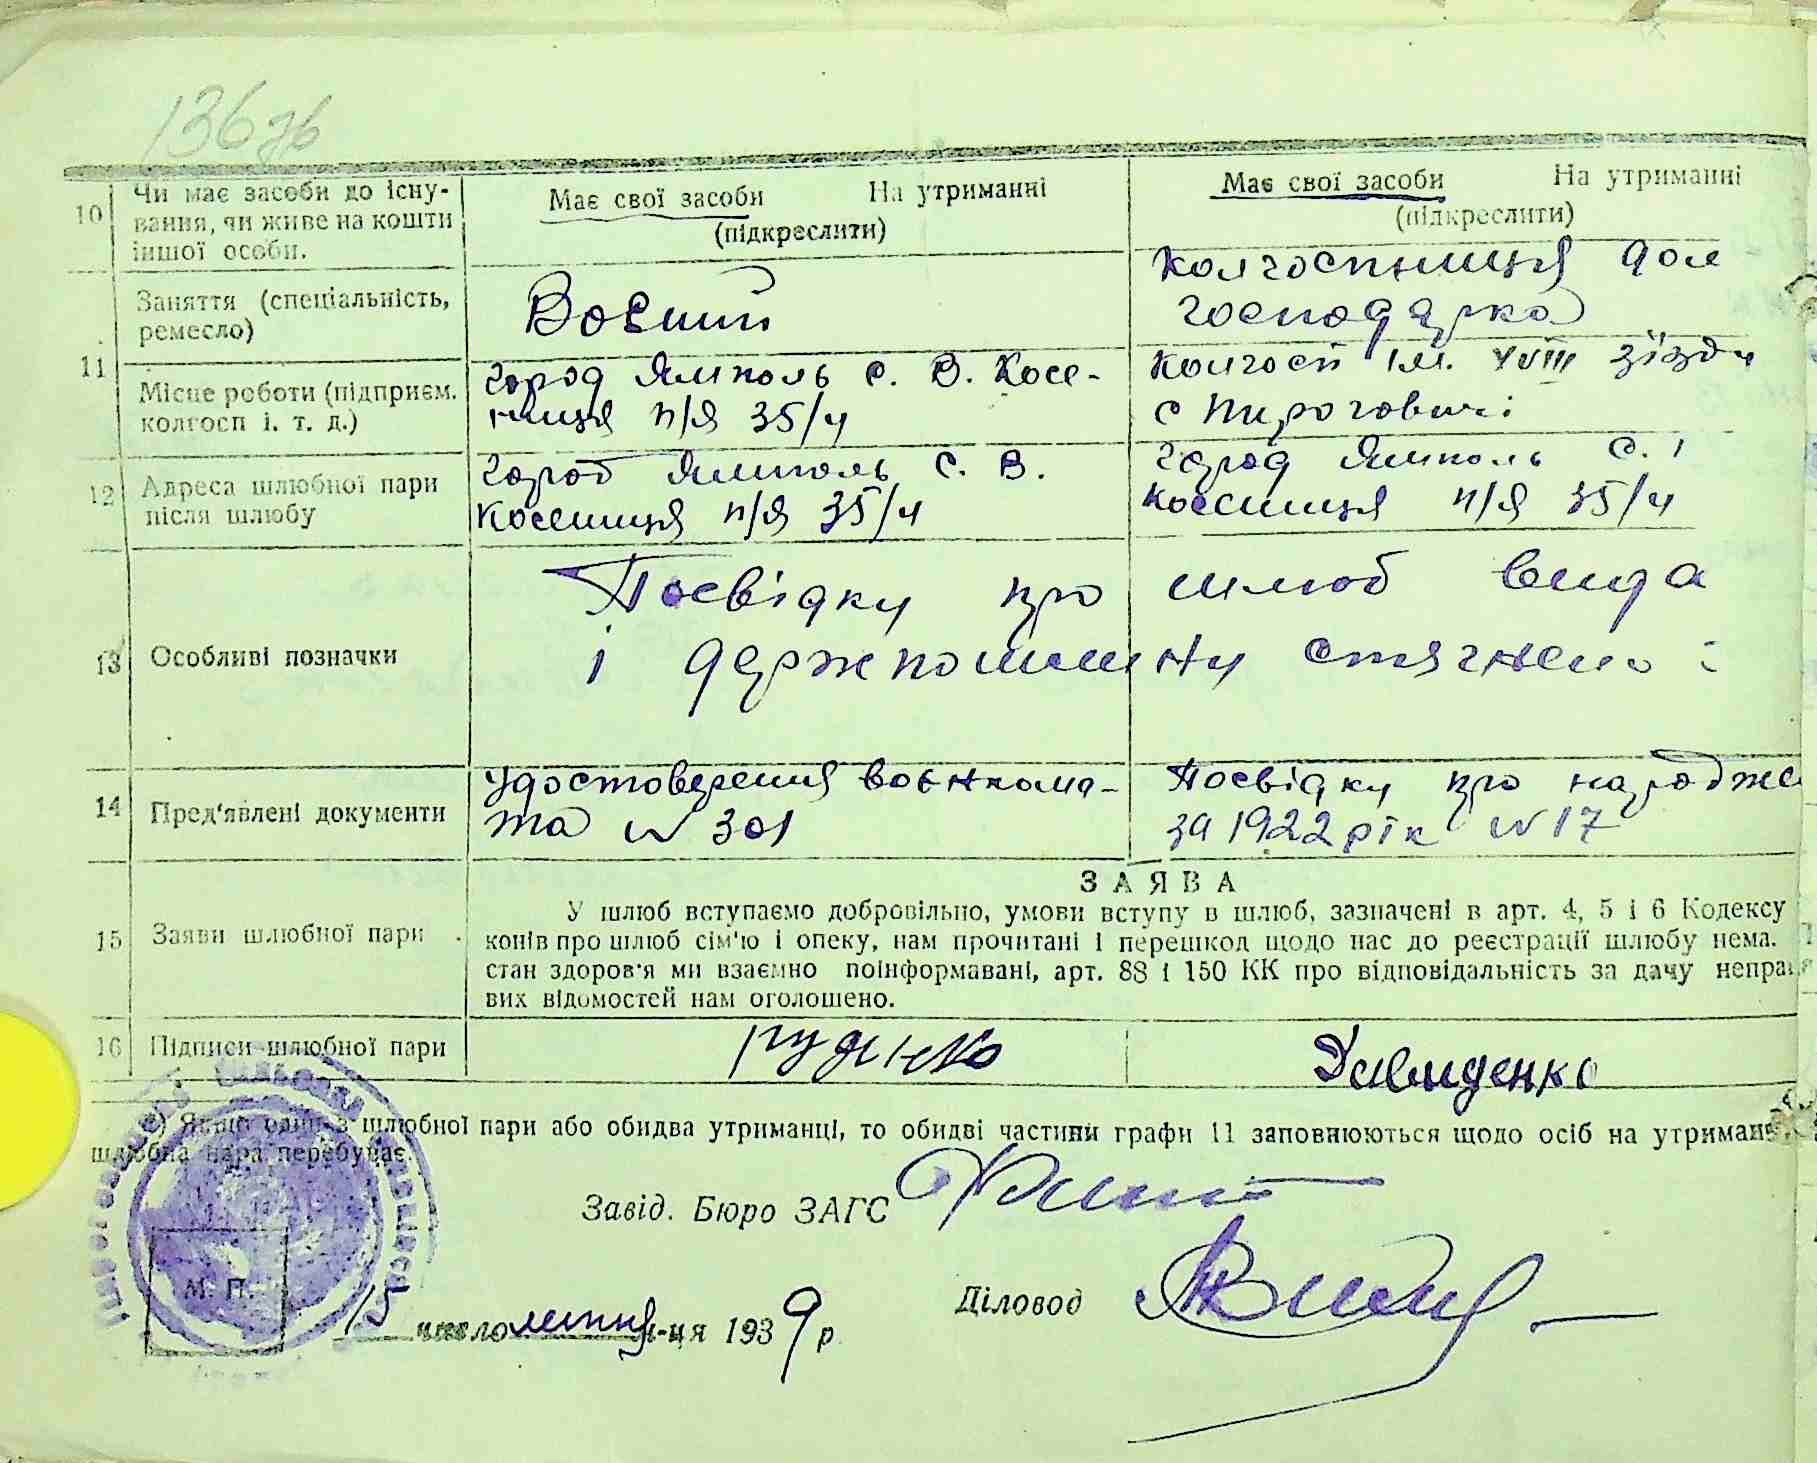 136зв
10 Чи має засоби до існу-
вання, чи живе на кошти
іншої особи.
Має свої засоби На утриманні
(підкреслити)
Має свої засоби На утриманні
(підкреслити)
11 Заняття (спеціальність,
ремесло)
Воєний
Колгоспниця дом
господарка
Місце роботи (підприєм.
колгосп і. т. д.)
город Ямполь С. В. Косе-
ниця п/я 35/ч
Колгосп ім. XVIII зїзду
с Пироговичі
12 Адреса шлюбної пари
після шлюбу
город Ямполь С. В.
Косениця п/я 35/ч
город Ямполь С.
Косениця п/я 35/ч
13 Особливі позначки
Посвідку про шлюб вида
і держпошлину стягнено
14 Пред'явлені документи
Удостоверения воєнкома-
та № 301
Посвідку про народже
за 1922 рік № 17
15 Заяви шлюбної пари
ЗАЯВА
У шлюб вступаємо добровільно, умови вступу в шлюб, зазначені в арт. 4, 5 і 6 Кодексу
конів про шлюб сім'ю і опеку, нам прочитані і перешкод щодо нас до реєстрації шлюбу нема.
стан здоров'я ми взаємно поінформавані, арт. 88 і 150 КК про відповідальність за дачу неправ
вих відомостей нам оголошено.
16 Підписи шлюбної пари
Руденко
Давиденко
) Якщо один з шлюбної пари або обидва утриманці, то обидві частини графи 11 заповнюються щодо осіб на утриман
шлюбна пара перебуває.
Завід. Бюро ЗАГС
М. П.
15 число липня м-ця 1939 р.
Діловод